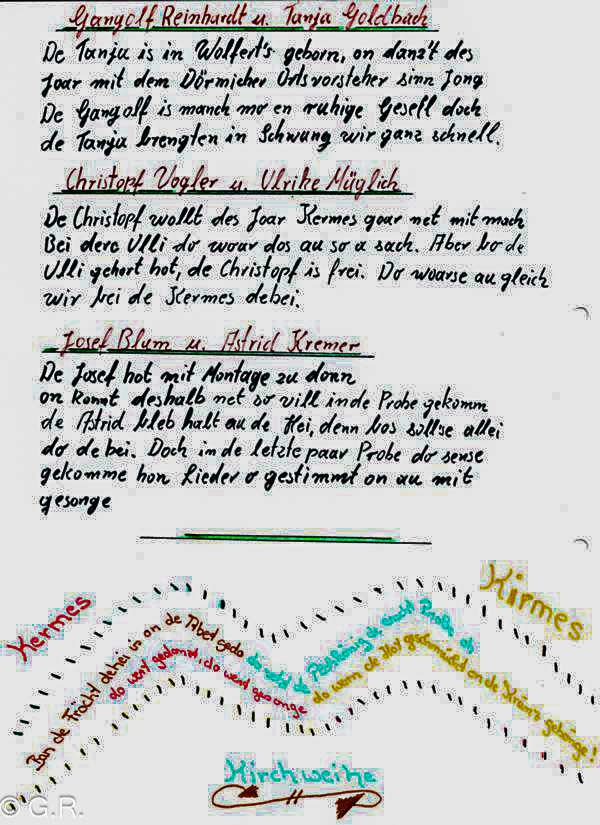 Gangolf Reinhardt u. Tanja Goldbach
De Tanja is in Wolferts geborn, on danzt des
Joar mit dem Dörmicher Ortsvorsteher sinn Jong
De Gangolf is manch mo en ruhige Gesell doch
de Tanja brengten in Schwung wir ganz schnell.
Christopf Vogler u. Ulrike Müglich
De Christopf wollt des Joar Kermes goar net mit mach
Bei dere Ulli do woar dos au so a sach. Aber bo de
Ulli gehort hot, de Christopf is frei. Do woarse au gleich
wir bei de Kermes debei.
Josef Blum u. Astrid Kremer
De Josef hot mit Montage zu donn
on konnt deshalb net so vill in de Probe gekomm
de Astrid bleb halt au de Hei, denn bos sollse allei
do de bei. Doch in de letzte paar Probe do sense
gekomme hon Lieder o gestimmt on au mit
gesonge
Kermes
Kirmes
Ban de Frücht dehei is on de Abet gedo
do werd gedanzt, do werd gesonge
do wern de Hot geschmückt on de Kränz gehänge!
Kirchweihe
© G.R.